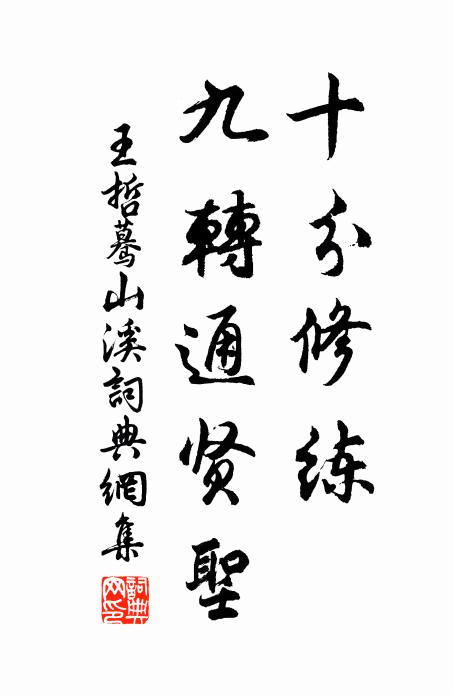 十分修练
九轉通贤聖
王哲驀山溪詞典網集
詞典網印